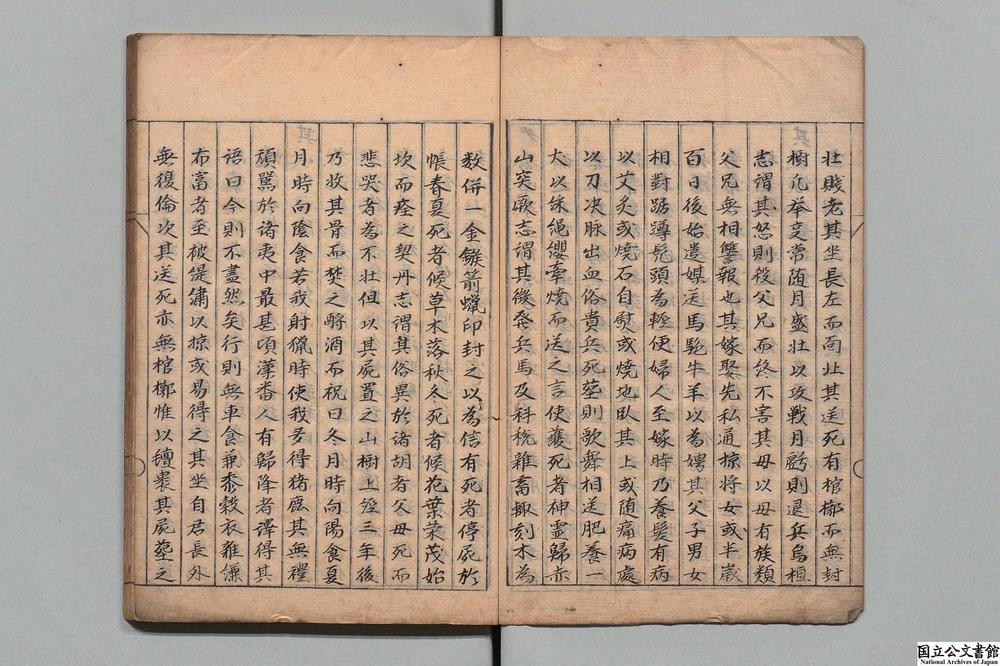 壮賤老其坐長左而面北其送死有棺槨而無封
樹凡举事常随月盛壮以攻戦月虧則退兵烏桓
志謂其怒則殺父兄而終不害其母以母有族類
父兄無相讐報也其嫁娶先私通掠将女或半歳
百日後始遣媒送馬駝牛羊以為娉其父子男女
相對踞蹲髡頭為輕便婦人至嫁時乃養髪有病
以艾灸或燒石自熨或燒地臥其上或随痛病處
以刀决脉出血俗貴兵死葬則歌舞相送肥養一
犬以綵繩纓牽燒而送之言使護死者神霊歸赤
山突厥志謂其徴発兵馬及料税雜畜輙刻木為
数併一金鏃箭蠟印封之以為信有死者停屍於
帳春夏死者候草木落秋冬死者候花葉荣茂始
坎而瘞之契丹志謂其俗異於諸胡者父母死而
悲哭者為不壮但以其屍置之山樹上經三年後
乃收其骨而焚之酹酒而祝曰冬月時向陽食夏
月時向陰食若我射猟時使我多得猪鹿其無禮
頑罵於諸夷中最甚項漢畨人有歸降者譯得其
語曰今則不盡然矣行則無車食兼黍穀衣雜縑
布富者至被緹繡以掠或易得之其坐自君長外
無復倫次其送死亦無棺槨惟以氊裘其屍塟之
国立公文書館
National Archives of Japan